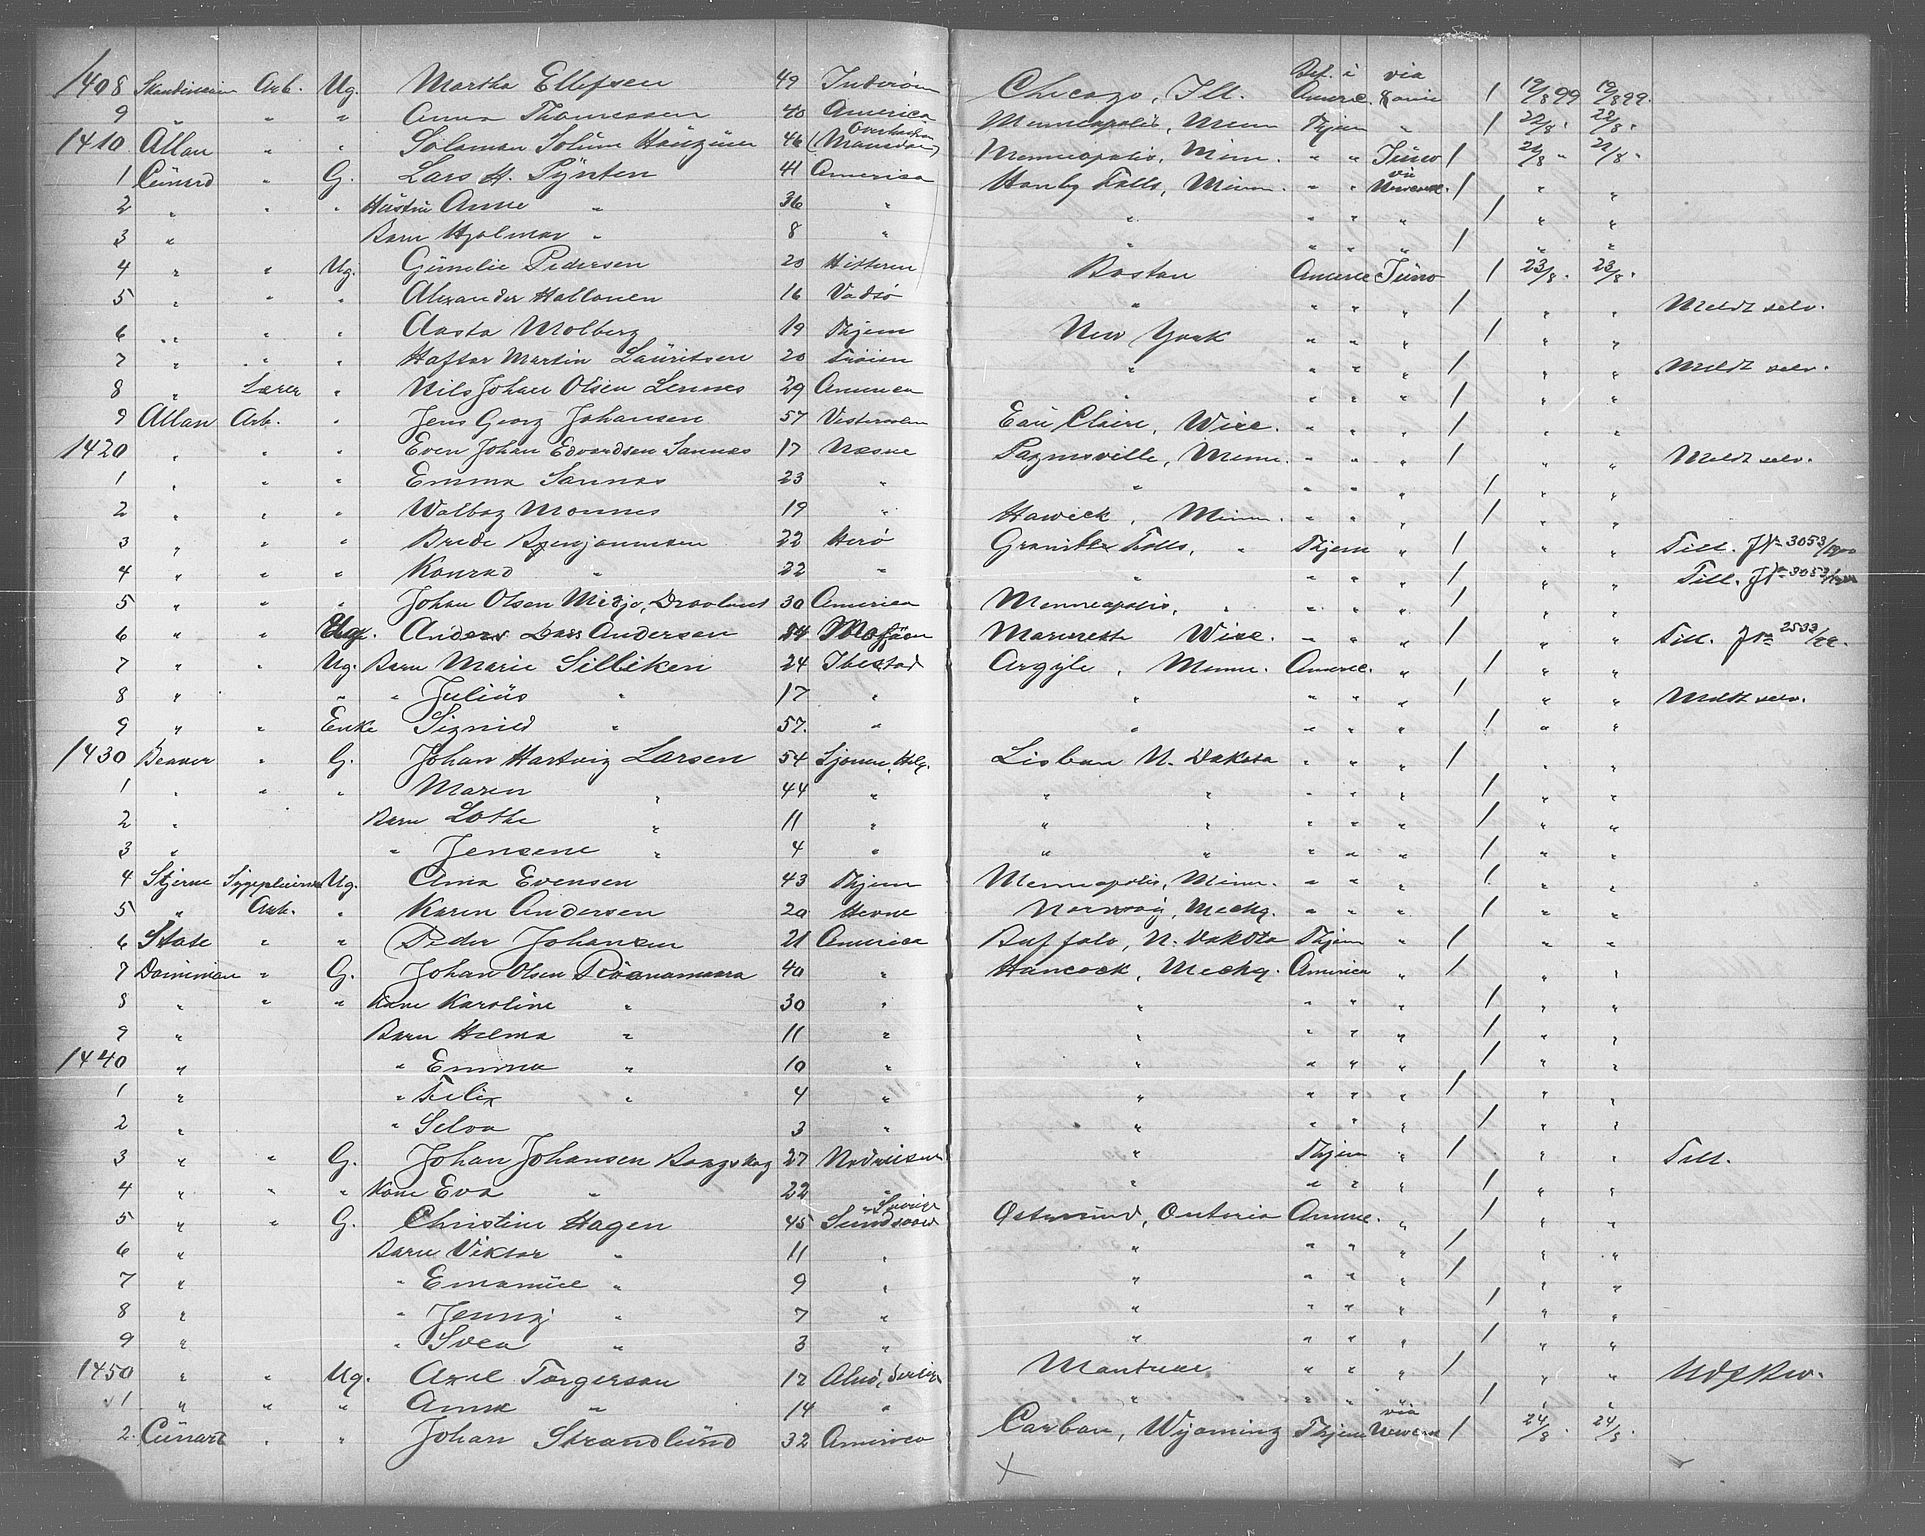 1408 Skandinavien Arb. Ug. Martha Ellefsen 49 Inderøen Chicago, Ill. Bet. i Americ. via 1 19/8 99 19/8 99.
9 " " " Anna Thomessen 40 America Minneapolis, Minn Thjem " 1 22/8 " 22/8 "
1410 Allan " " Solomon Solum 46 Minneapolis, Minn. " " Juno 1 21/8 " 21/8 "
1 Cunard " G. Lars H. Pynten 41 America Hanley Falls, Minn. " " via Newcas. 1 " "
2 " " " Hustru Anne " 36 " " " " " 1 " "
3 " Barn Hjalmar " 8 " " " " " 1 " "
4 " " Ug. Gunelie Pedersen 20 Hitteren Boston Americ Juno 1 23/8 " 23/8 "
5 " " " Alexander Hallonen 16 Vadsø " " " " 1 " " Meldt selv.
6 " " " Aasta Molberg 19 Thjem New York " " " 1 " "
7 " " " Haftor Martin Lauritsen 20 " " " " 1 " " Meldt selv.
8 " Lærer " Nils Johan Olsen Lennes 29 America " " " " 1 " "
9 Allan Arb. " Jens Georg Johansen 57 Eau Claire, Wisc. " " " 1 " "
1420 " " " Even Johan Edvardsen Sannæs 17 Næsne Paynesville, Minn. " " " 1 " " Meldt selv.
1 " " " Emma Sannæs 23 " " " " " 1 " "
2 " " " Walbog Monnes 19 " Hawick, Minn. " " " 1 " "
3 " " " Brede Benjaminsen 22 Herø Granite Falls, " Thjem " 1 " " Till. JN 3053/1900
4 " " " Konrad " 22 " " " " " 1 " " Till. JN 3053/1900
5 " " " Johan Olsen 30 America Minneapolis, " " " " 1 " "
6 " " Ug. Anders Lars Andersen 24 Marinette Wisc. " " " 1 " " Till. JN 2533/99.
7 " " Ug. Barn Marie Silliken 24 Ibestad Argyle, Minn. Americ. " 1 " "
8 " " " Julius " 17 " " " " 1 " " Meldt selv.
9 " " Enke Signild " 57. " " " " " 1 " "
1430 Beaver " G. Johan Hartvig Larsen 54 Sjonen, Helg. Lisbon N. Dakota " " " 1 " "
1 " " " Maren " 44 " " " " " " 1 " "
2 " Barn Lothe " 11 " " " " " " 1 " "
3 " " Jensene " 4 " " " " " " 1 " "
4 Stjerne Sygepleierske Ug. Anna Evensen 43 Thjem Minneapolis, Minn. " " " 1 " "
5 " Arb. " Karen Andersen 20 Hevne Norway, Mechg. " " " 1 " "
6 State " " Peder Johansen 21 America Buffalo, N. Dakota Thjem " 1 " "
7 Dominion " G. Johan Olsen 40 " Hancock, Mechg. America " 1 " "
8 " " " Kone Karoline " 30 " " " " " 1 " "
9 " Barn Helma " 11 " " " " " 1 " "
1440 " " Emma " 10 " " " " " 1 " "
1 " " Felix " 4 " " " " " 1 " "
2 " " Selva 3 " " " " " 1 " "
3 " " G. Johan Johansen Bangskog 27 " Thjem " 1 " " Till.
4 " " " Kone Eva " 22 " " " " " 1 " "
5 " " G. Christine Hagen 45 Sundsvald Sverige Ontario Americ. " 1 " "
6 " Barn Viktor " 11 " " " " " 1 " "
7 " " Emanuel " 9 " " " " " 1 " "
8 " " Jenny " 7 " " " " " 1 " "
9 " " Svea " 3 " " " " " 1 " "
1450 " " Ug. Axel Torgersen 17 Montreal " " " 1 " "
1 " " " Anna " 14 " " " " " 1 " "
2. Cunard " " Johan Strandlund 32 America Carbon, Wyoming Thjem via Newcas 1 24/8 " 24/8 "
x